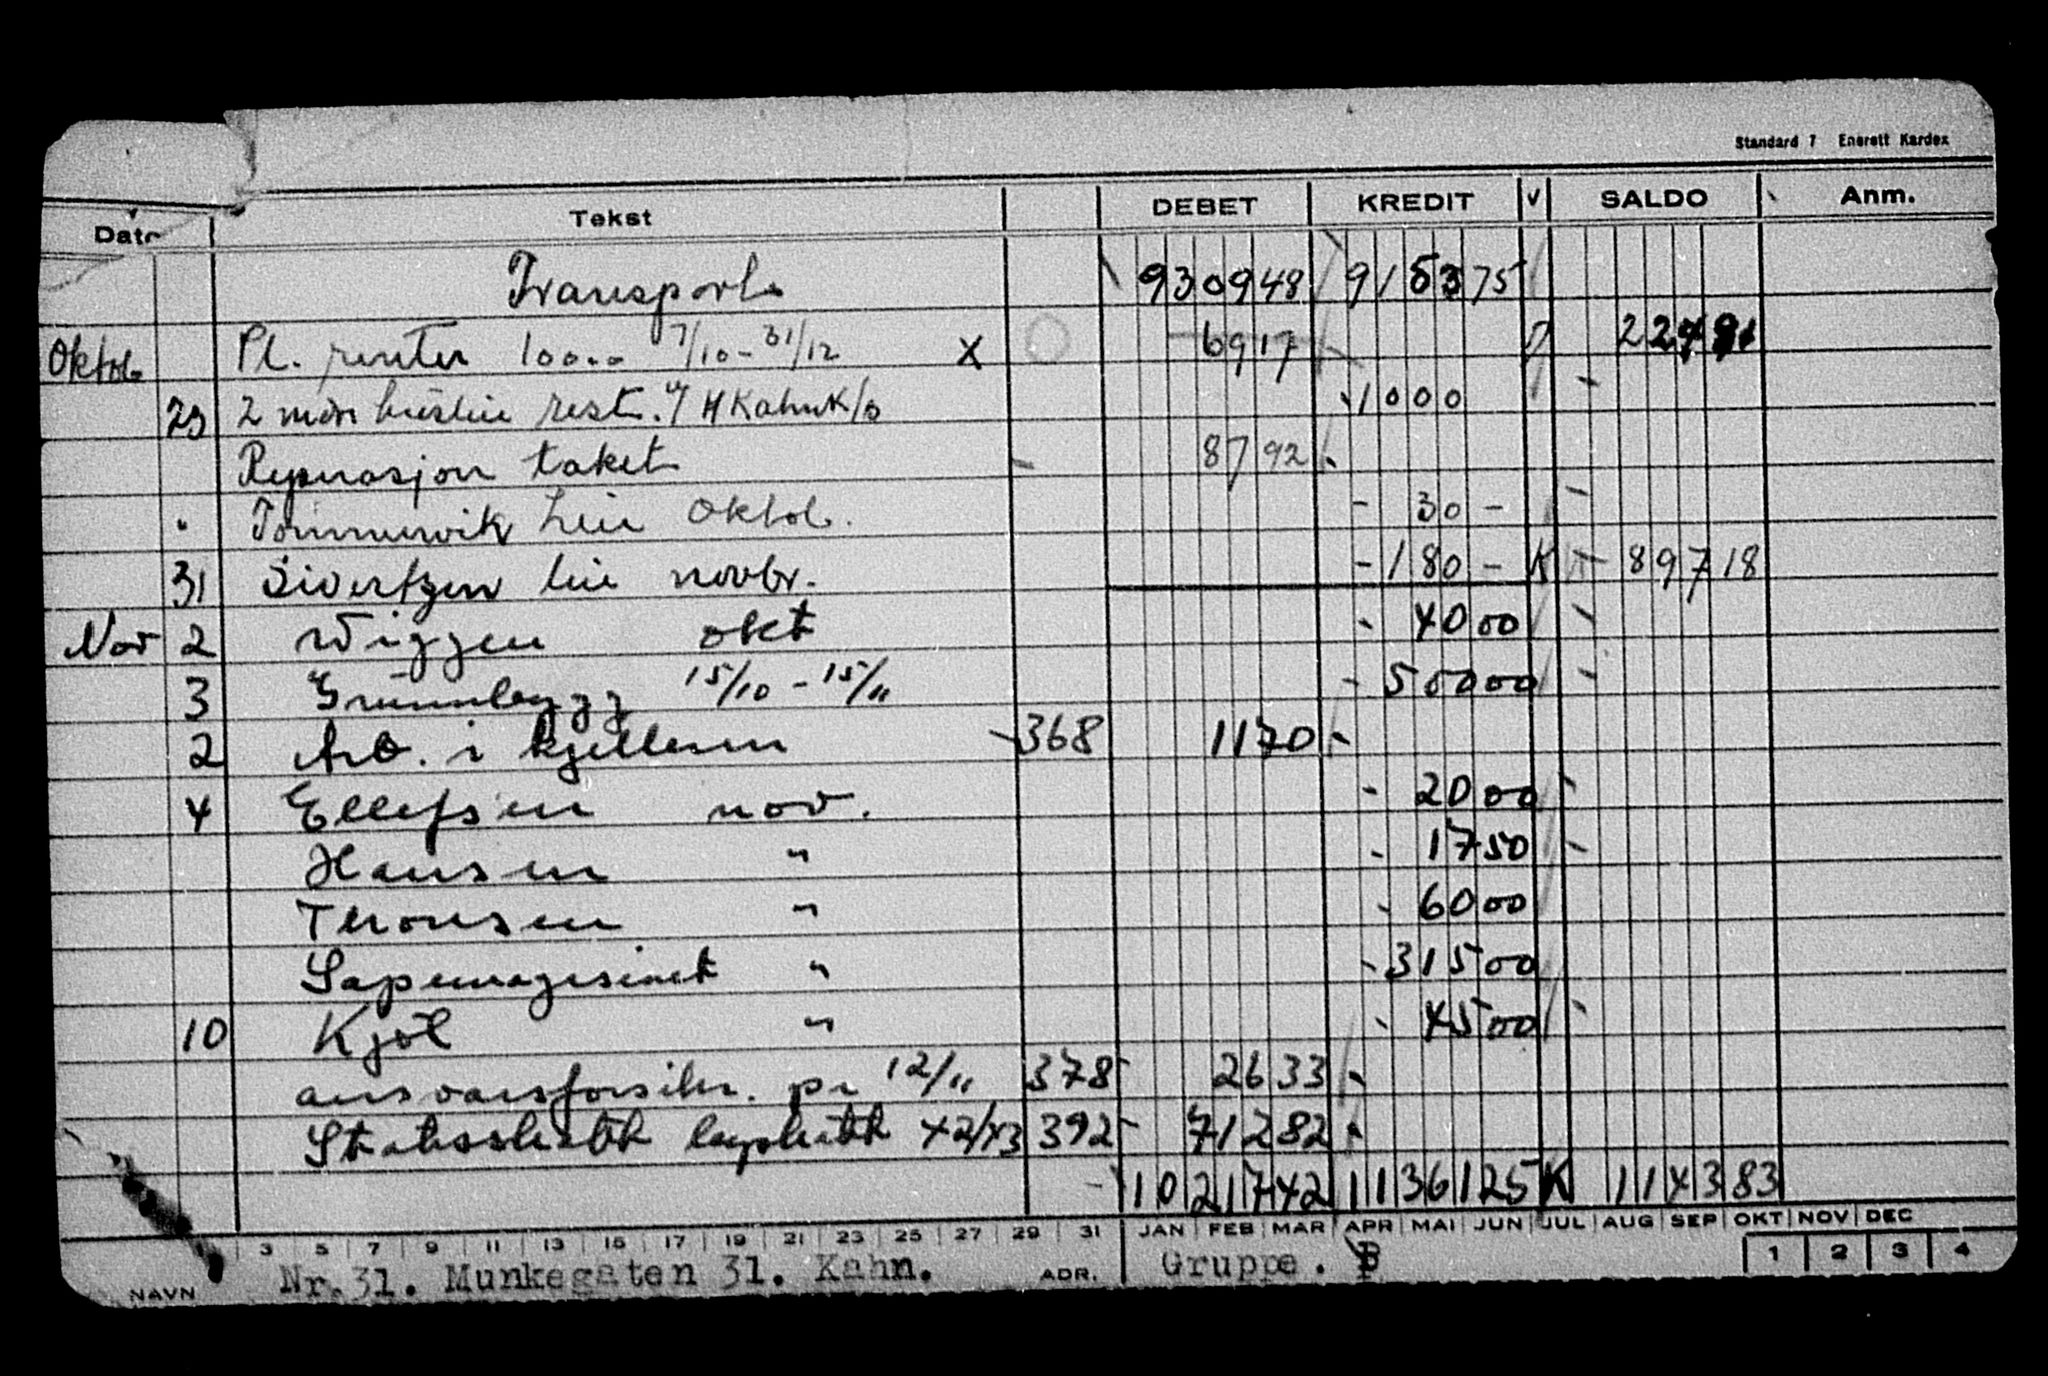 Standard 7 Enerett Kardex
Dato Tekst DEBET KREDIT V SALDO Anm.
Transport 930948 915375
Oktob. Pl. renter 10000 7/10 - 31/12 X 6917 22491
29 2 mdrs husleie rest. H Kahn K/o 1000
Reparasjon taket 8792
" Tømmervik leie Oktob. 30 -
31 Sivertzen leie novbr. 180 - K 89718
Nov 2 Wiggen okt 4000
3 Grünnbygg 15/10 - 15/11 50000
2 Arb. i kjelleren 368 1170
4 Ellefsen nov. 2000
Hansen " 1750
Thonsen " 6000
Sapemagasinet " 31500
10 Kjøl " 4500
ansvarsforsikr. pr 12/11 378 2633
Statsskatt 42/43 392 71282
1021742 1136125 K 114383
3 5 7 9 11 13 15 17 19 21 23 25 27 29 31 JAN FEB MAR APR MAI JUN JUL AUG SEP OKT NOV DEC
NAVN Nr.31. Munkegaten 31. Kahn. ADR. Gruppe. 1 2 3 4